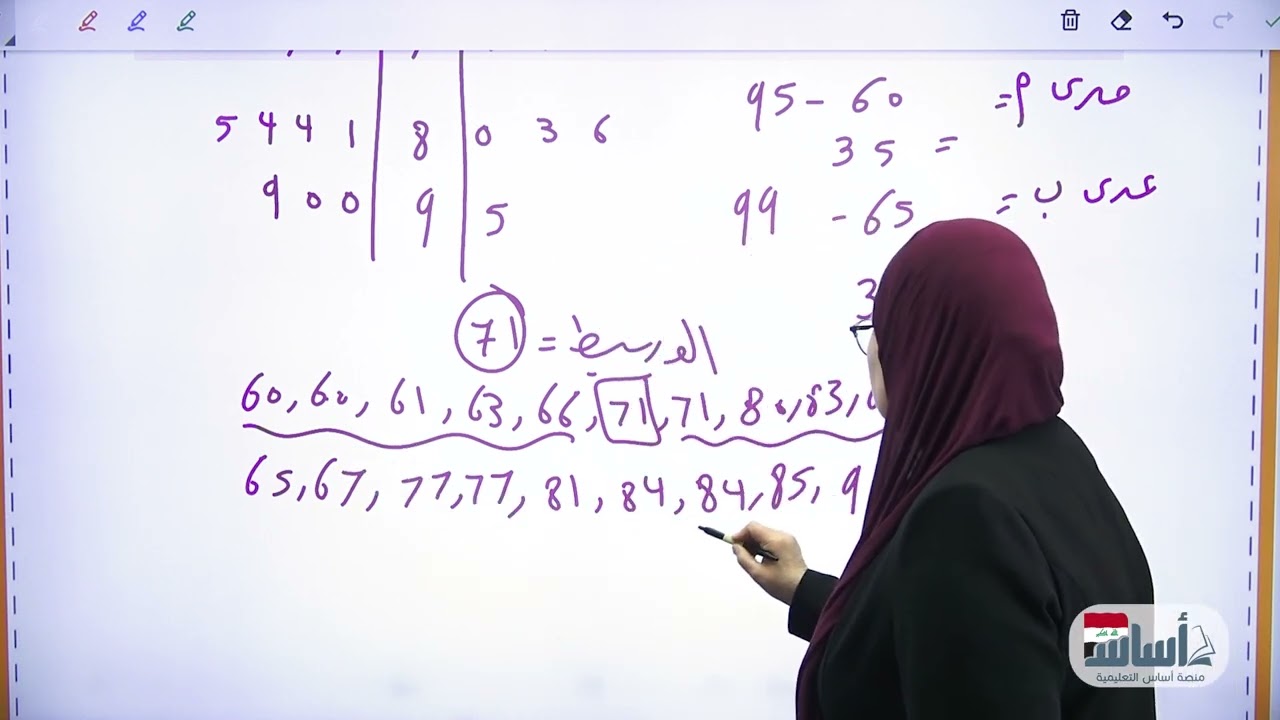 5 4 4 1 | 8 | 0 3 6
9 0 0 | 9 | 5
مدى م = 95 - 60
= 35
مدى ب = 99 - 65
3
الوسيط = 71
60, 60, 61, 63, 66, 71, 71, 80, 83,
65, 67, 77, 77, 81, 84, 84, 85, 9
أساس
منصة أساس التعليمية